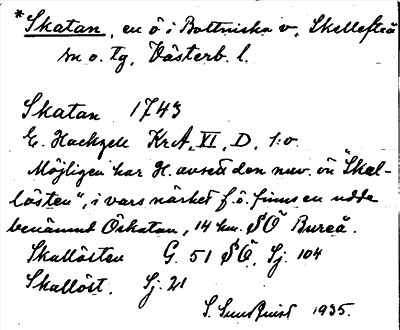 *Skatan, en ö i Bottniska v, Skellefteå
sn o. tg, Västerb. l.
Skatan 1743
E. Hackzell KrA, VI, D, 1:o
Möjligen har H. avsett den nuv. ön "Skal-
lösten", i vars närhet f.ö. finns en udde
benämnd Öskatan, 14 km. SÖ Bureå.
Skallösten G. 51 SÖ, Sj. 104
Skallöst. Sj. 21
S. Sundquist 1935.